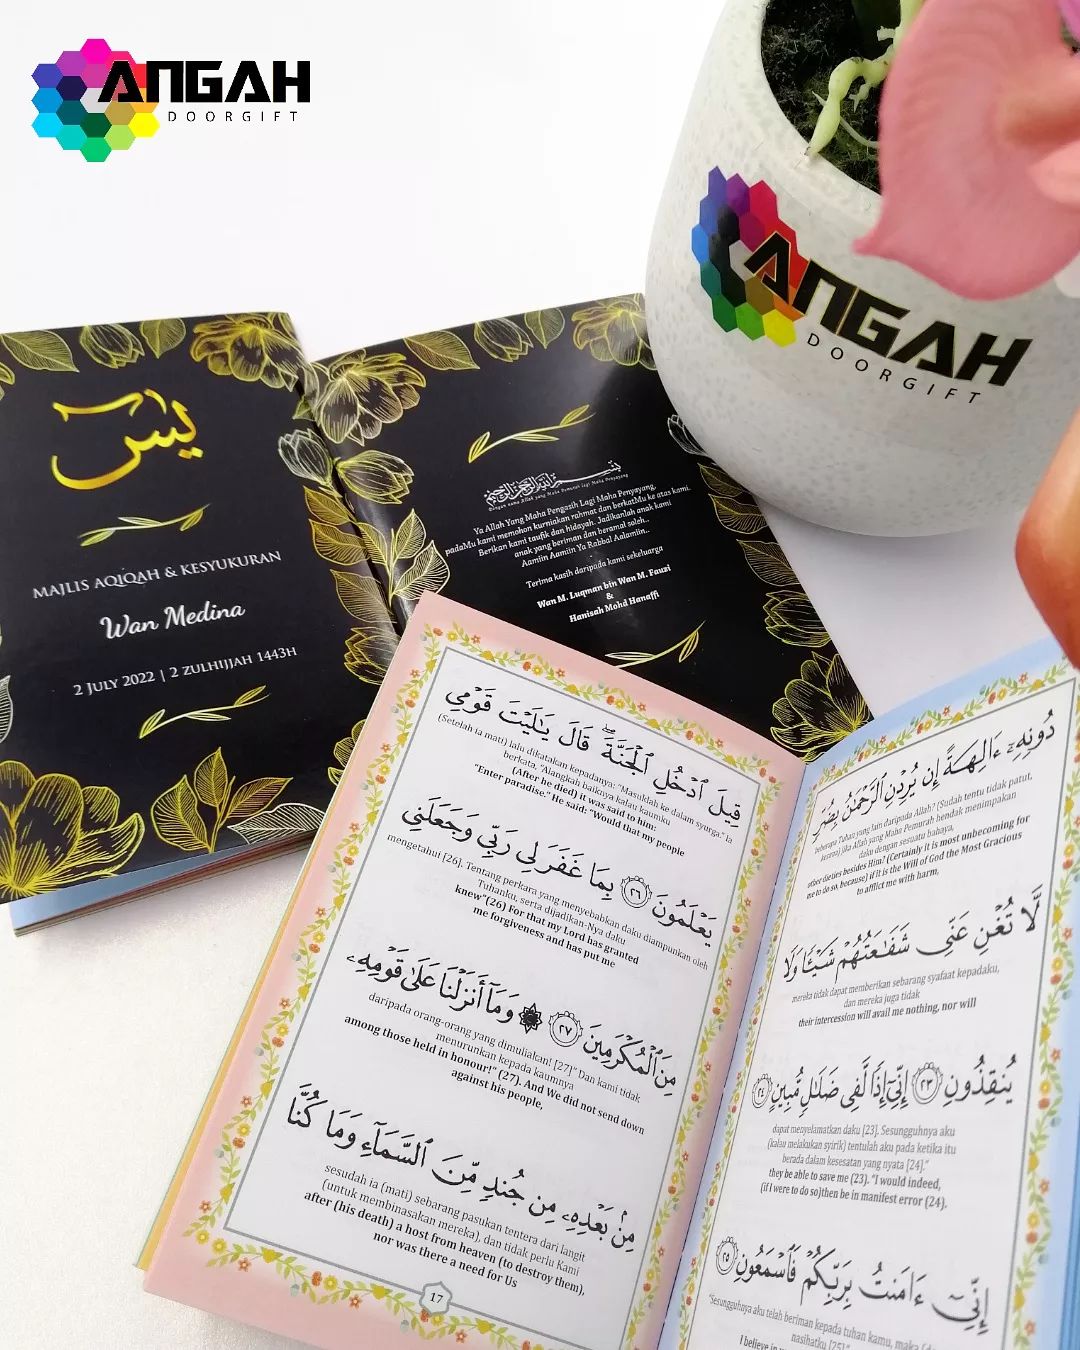 ANGAH
DOORGIFT
ANGAH
DOORGIFT
يس
MAJLIS AQIQAH & KESYUKURAN
Wan Medina
2 JULY 2022 | 2 ZULHIJJAH 1443H
بسم الله الرحمن الرحيم
Dengan nama Allah yang Maha Pemurah lagi Maha Penyayang
Ya Allah Yang Maha Pengasih Lagi Maha Penyayang,
padaMu kami memohon kurniakan rahmat dan berkatMu ke atas kami.
Berikan kami taufik dan hidayah. Jadikanlah anak kami
anak yang beriman dan beramal soleh..
Aamiin Aamiin Ya Rabbal Aalamiin..
Terima kasih daripada kami sekeluarga
Wan M. Luqman bin Wan M. Fauzi
&
Hanisah Mohd Hanaffi
قِيلَ ٱدْخُلِ ٱلْجَنَّةَ ۖ قَالَ يَٰلَيْتَ قَوْمِى
(Setelah ia mati) lalu dikatakan kepadanya: "Masuklah ke dalam syurga." Ia
berkata, "Alangkah baiknya kalau kaumku
(After he died) it was said to him:
"Enter paradise." He said: "Would that my people
يَعْلَمُونَ ٢٦ بِمَا غَفَرَ لِى رَبِّى وَجَعَلَنِى
mengetahui [26]. Tentang perkara yang menyebabkan daku diampunkan oleh
Tuhanku, serta dijadikan-Nya daku
knew"(26) For that my Lord has granted
me forgiveness and has put me
مِنَ ٱلْمُكْرَمِينَ ٢٧ ۞ وَمَآ أَنزَلْنَا عَلَىٰ قَوْمِهِۦ
daripada orang-orang yang dimuliakan! [27]" Dan kami tidak
menurunkan kepada kaumnya
among those held in honour!" (27). And We did not send down
against his people,
مِنۢ بَعْدِهِۦ مِن جُندٍ مِّنَ ٱلسَّمَآءِ وَمَا كُنَّا
sesudah ia (mati) sebarang pasukan tentera dari langit
(untuk membinasakan mereka), dan tidak perlu Kami
after (his death) a host from heaven (to destroy them),
nor was there a need for Us
17
دُونِهِۦٓ ءَالِهَةً إِن يُرِدْنِ ٱلرَّحْمَٰنُ بِضُرٍّ
"beberapa Tuhan yang lain daripada Allah? (Sudah tentu tidak patut,
kerana) jika Allah yang Maha Pemurah hendak menimpakan
daku dengan sesuatu bahaya,
other dieties besides Him? (Certainly it is most unbecoming for
me to do so, because) if it is the Will of God the Most Gracious
to afflict me with harm,
لَّا تُغْنِ عَنِّى شَفَٰعَتُهُمْ شَيْـًٔا وَلَا
mereka tidak dapat memberikan sebarang syafaat kepadaku,
dan mereka juga tidak
their intercession will avail me nothing, nor will
يُنقِذُونِ ٢٣ إِنِّىٓ إِذًا لَّفِى ضَلَٰلٍ مُّبِينٍ ٢٤
dapat menyelamatkan daku [23]. Sesungguhnya aku
(kalau melakukan syirik) tentulah aku pada ketika itu
berada dalam kesesatan yang nyata [24]."
they be able to save me (23). "I would indeed,
(if I were to do so)then be in manifest error (24).
إِنِّىٓ ءَامَنتُ بِرَبِّكُمْ فَٱسْمَعُونِ ٢٥
"Sesungguhnya aku telah beriman kepada tuhan kamu, maka
nasihatku [25]."
I believe in